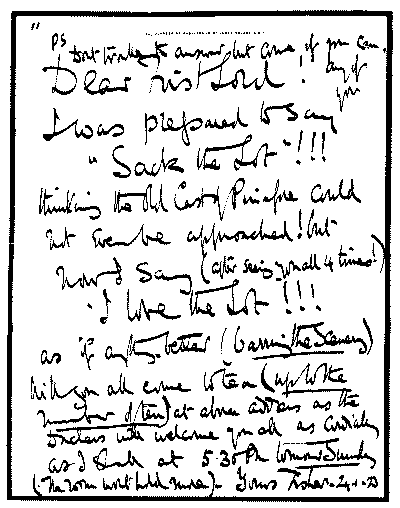 "
PS Don't trouble to answer, but come if you can.
any of
you
Dear 1st Lord!
I was prepared to say
"Sack the Lot"!!!
thinking the Old Cast of Pinafore could
not even be approached! but
now I say (after seeing you all 4 times!)
"I love the Lot!!!
as if anything better (barring the Scenery)
Will you all come to tea (up to the
number of ten) at above address as the
Duchess will welcome you all as cordially
as I shall at 5.30 PM tomorrow Sunday
(The room won't hold more). Yours Fisher 24